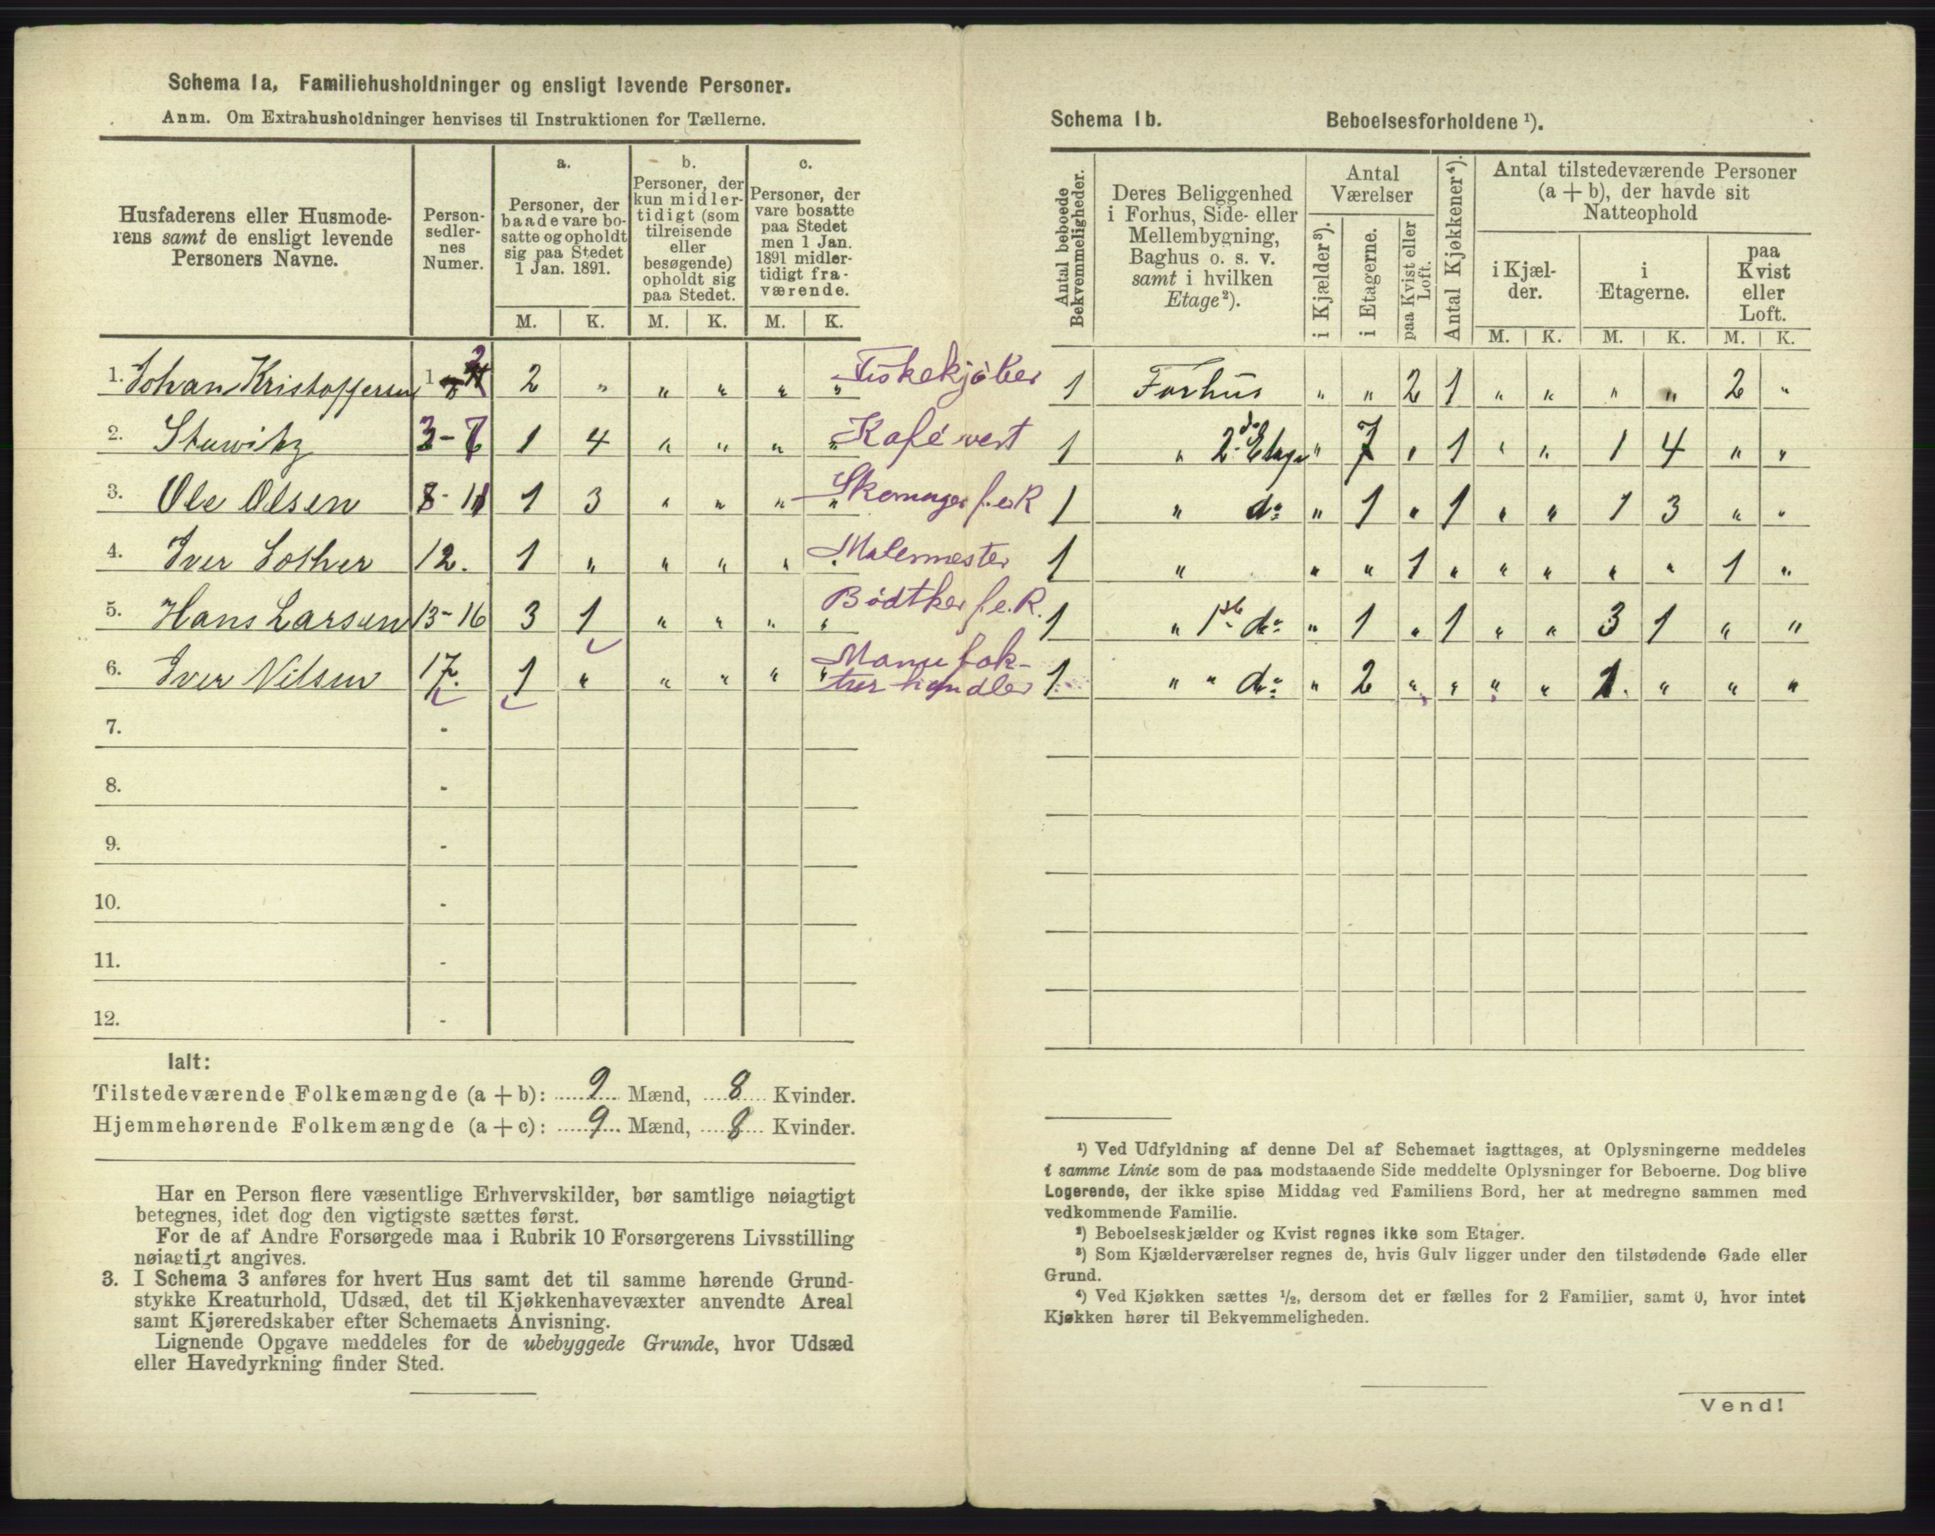 Schema 1a, Familiehusholdninger og ensligt levende Personer.
Anm. Om Extrahusholdninger henvises til Instruktionen for Tællerne.
Husfaderens eller Husmode-
rens samt de ensligt levende
Personers Navne.
Person-
sedler-
nes
Numer.
a.
Personer, der
baade vare bo-
satte og opholdt
sig paa Stedet
1 Jan. 1891.
b.
Personer, der
kun midler-
tidigt (som
tilreisende
eller
besøgende)
opholdt sig
paa Stedet.
c.
Personer, der
vare bosatte
paa Stedet
men 1 Jan.
1891 midler-
tidigt fra-
værende.
M. K. M. K. M. K.
1. Johan Kristoffersen 1 - 2 2 " " " " " Fiskekjøber
2. Stuwitz 3 - 7 1 4 " " " " Kafé vert
3. Ole Olsen 8 - 11 1 3 " " " " Skomager f.e.R
4. Iver Lother 12. 1 " " " " " Malermester
5. Hans Larsen 13 - 16 3 1 " " " " Bødtker f.e.R.
6. Iver Nilsen 17. 1 " " " " " Manufak-
turhandler
7. -
8. -
9. -
10. -
11. -
12. -
Ialt:
Tilstedeværende Folkemængde (a + b): 9 Mænd, 8 Kvinder.
Hjemmehørende Folkemængde (a + c): 9 Mænd, 8 Kvinder.
Har en Person flere væsentlige Erhvervskilder, bør samtlige nøiagtigt
betegnes, idet dog den vigtigste sættes først.
For de af Andre Forsørgede maa i Rubrik 10 Forsørgerens Livsstilling
nøiagtigt angives.
3. I Schema 3 anføres for hvert Hus samt det til samme hørende Grund-
stykke Kreaturhold, Udsæd, det til Kjøkkenhavevæxter anvendte Areal
samt Kjøreredskaber efter Schemaets Anvisning.
Lignende Opgave meddeles for de ubebyggede Grunde, hvor Udsæd
eller Havedyrkning finder Sted.
Schema 1b. Beboelsesforholdene ¹).
Antal beboede
Bekvemmeligheder.
Deres Beliggenhed
i Forhus, Side- eller
Mellembygning,
Baghus o. s. v.
samt i hvilken
Etage ²).
Antal
Værelser
i Kjælder ³).
i Etagerne.
paa Kvist eller
Loft.
Antal Kjøkkener ⁴).
Antal tilstedeværende Personer
(a + b), der havde sit
Natteophold
i Kjæl-
der.
i
Etagerne.
paa
Kvist
eller
Loft.
M. K. M. K. M. K.
1 Forhus " " 2 1 " " " " 2 "
1 " 2d. Etage " 7 " 1 " " 1 4 " "
1 " do " 1 " 1 " " 1 3 " "
1 " " " 1 " " " " " 1 "
1 " 1ste do " 1 " 1 " " 3 1 " "
1 " " do " 2 " " " " 1. " " "
¹) Ved Udfyldning af denne Del af Schemaet iagttages, at Oplysningerne meddeles
i samme Linie som de paa modstaaende Side meddelte Oplysninger for Beboerne. Dog blive
Logerende, der ikke spise Middag ved Familiens Bord, her at medregne sammen med
vedkommende Familie.
²) Beboelseskjælder og Kvist regnes ikke som Etager.
³) Som Kjælderværelser regnes de, hvis Gulv ligger under den tilstødende Gade eller
Grund.
⁴) Ved Kjøkken sættes ½, dersom det er fælles for 2 Familier, samt 0, hvor intet
Kjøkken hører til Bekvemmeligheden.
Vend!